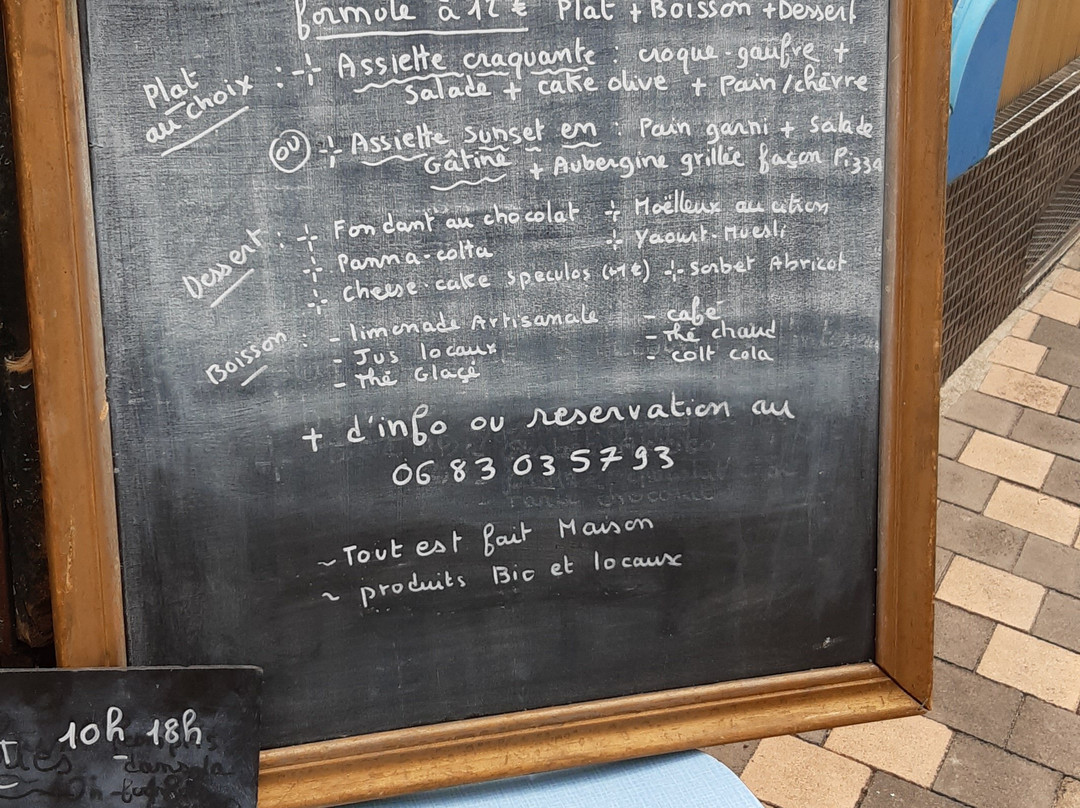 formule à 12 € Plat + Boisson + Dessert
Plat au choix : Assiette craquante : croque-gaufre +
salade + cake olive + Pain/chèvre
ou Assiette sunset en : Pain garni + Salade
Gâtine + Aubergine grillée façon Pizza
Dessert : Fondant au chocolat Moëlleux au citron
Panna-cotta Yaourt-Muesli
cheese-cake speculos (+1€) Sorbet Abricot
Boisson : - limonade Artisanale - café
- Jus locaux - Thé chaud
- Thé Glacé - colt cola
+ d'info ou reservation au
06 83 03 57 93
~ Tout est fait Maison
~ produits Bio et locaux
10h 18h